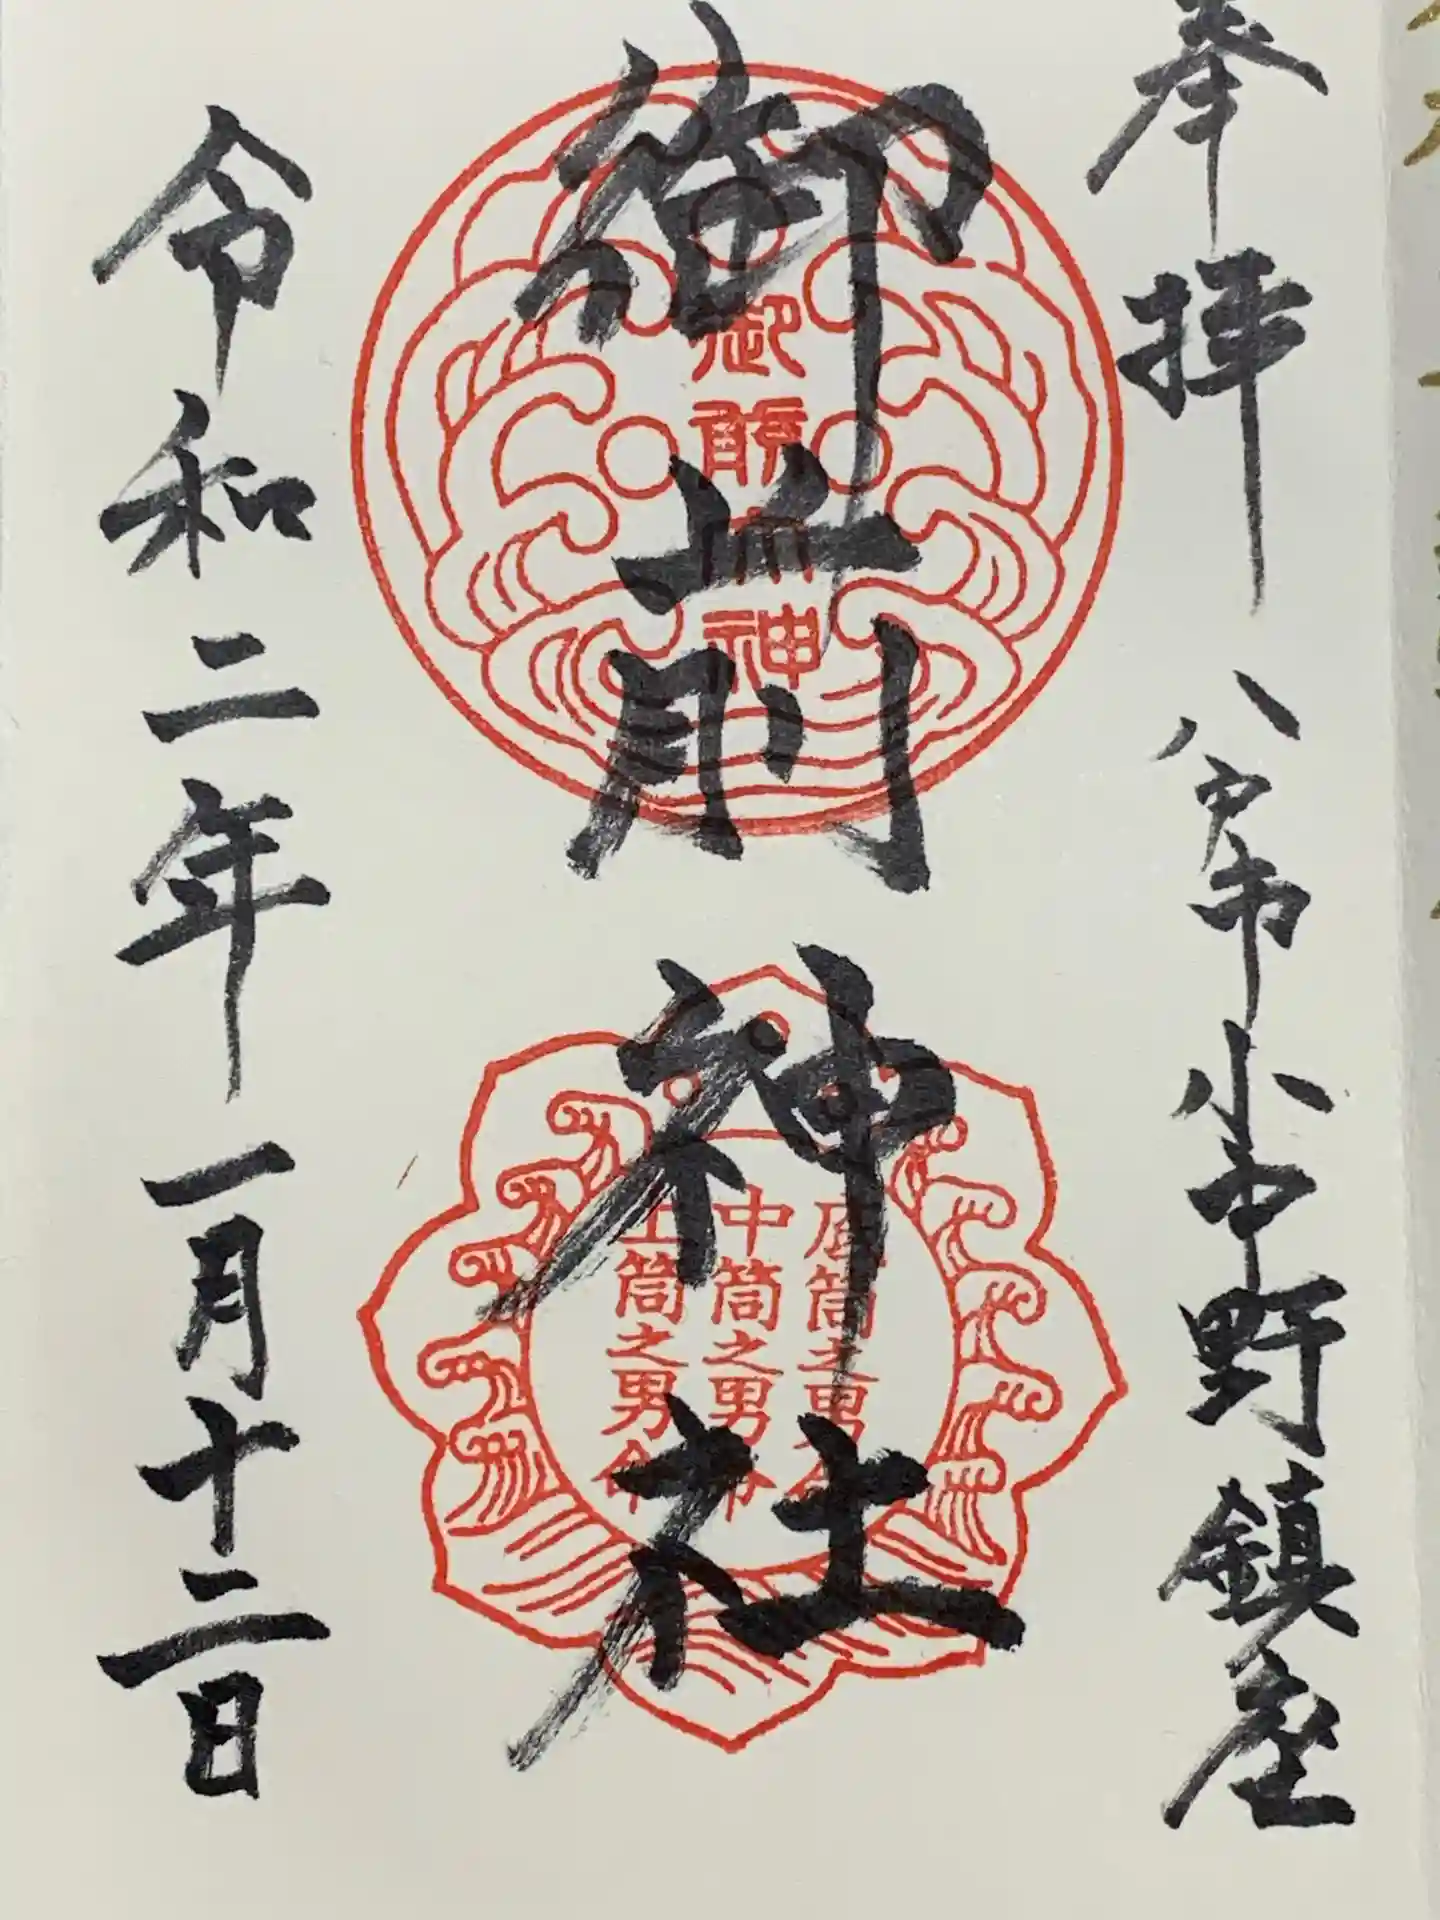 奉拝 八戸市小中野鎮座
御前神社
御前大神
底筒之男命
中筒之男命
上筒之男命
令和二年一月十二日